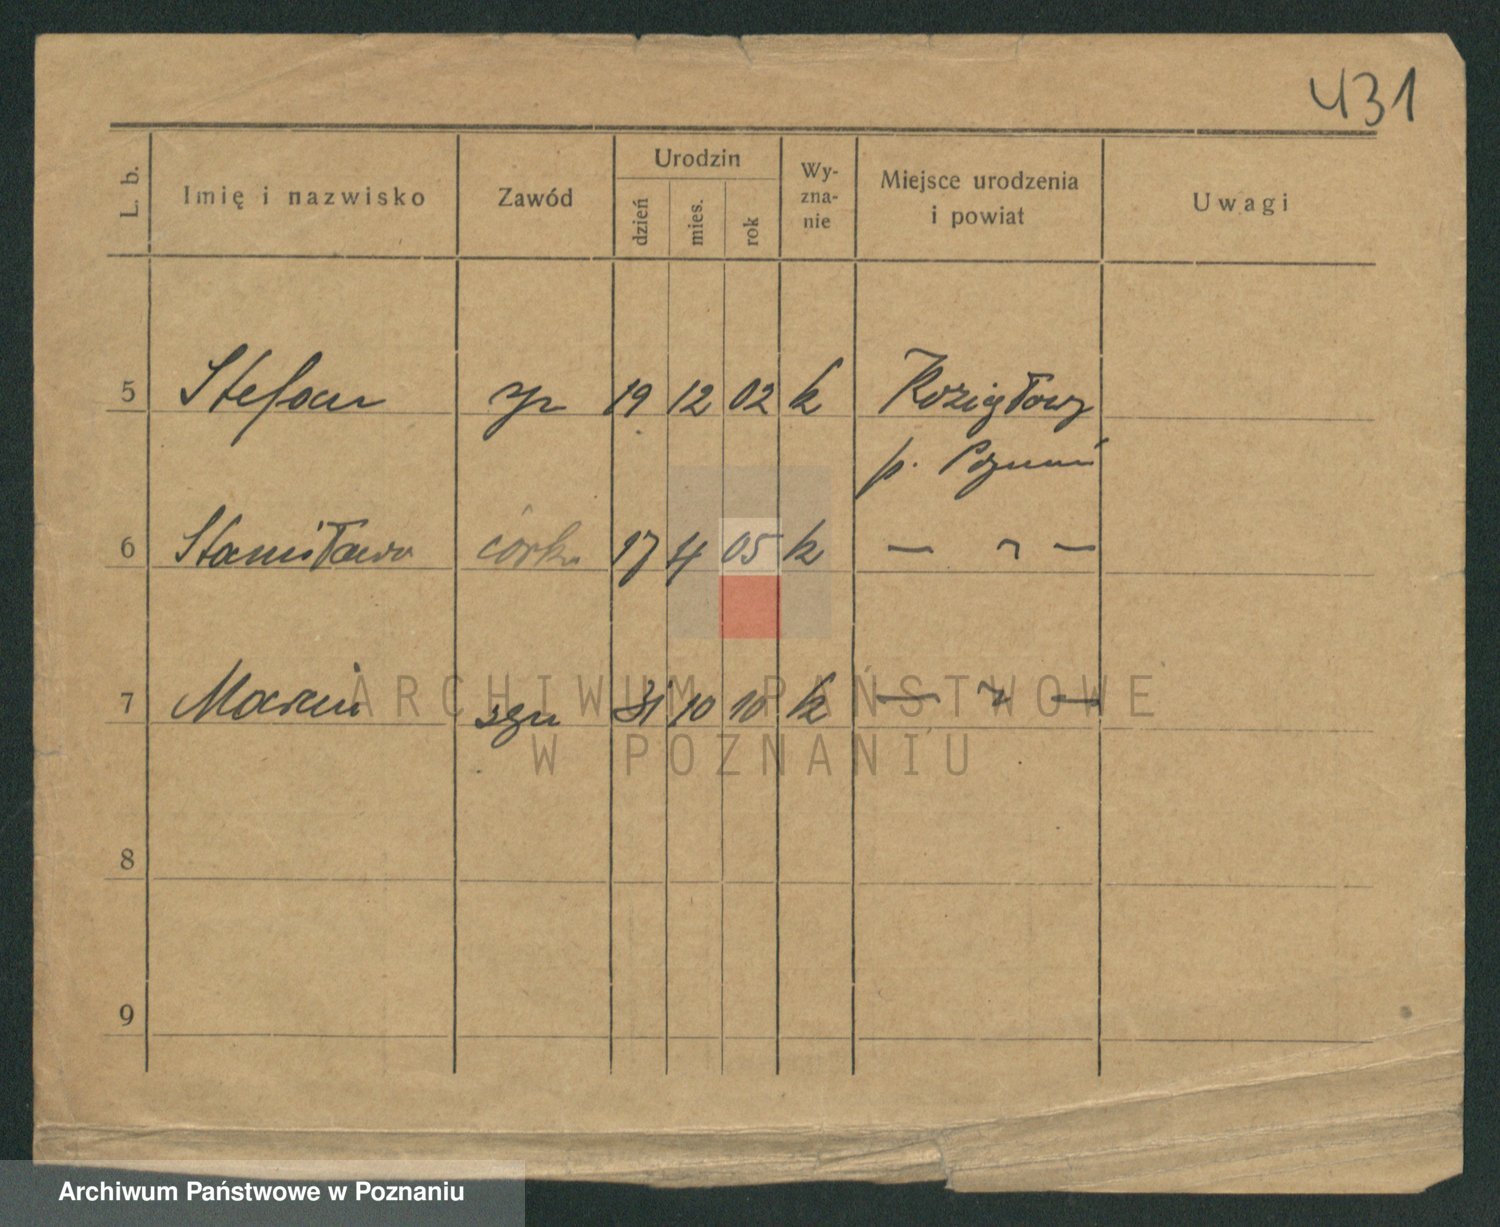 431
L. b.
Imię i nazwisko
Zawód
Urodzin
dzień
mies.
rok
Wy-
zna-
nie
Miejsce urodzenia
i powiat
Uwagi
5 Stefan syn 19 12 02 k
p. Poznań
6 Stanisława córka 17 4 05 k — " —
7 Marcin syn 31 10 10 k — " —
8
9
ARCHIWUM PAŃSTWOWE
W POZNANIU
Archiwum Państwowe w Poznaniu